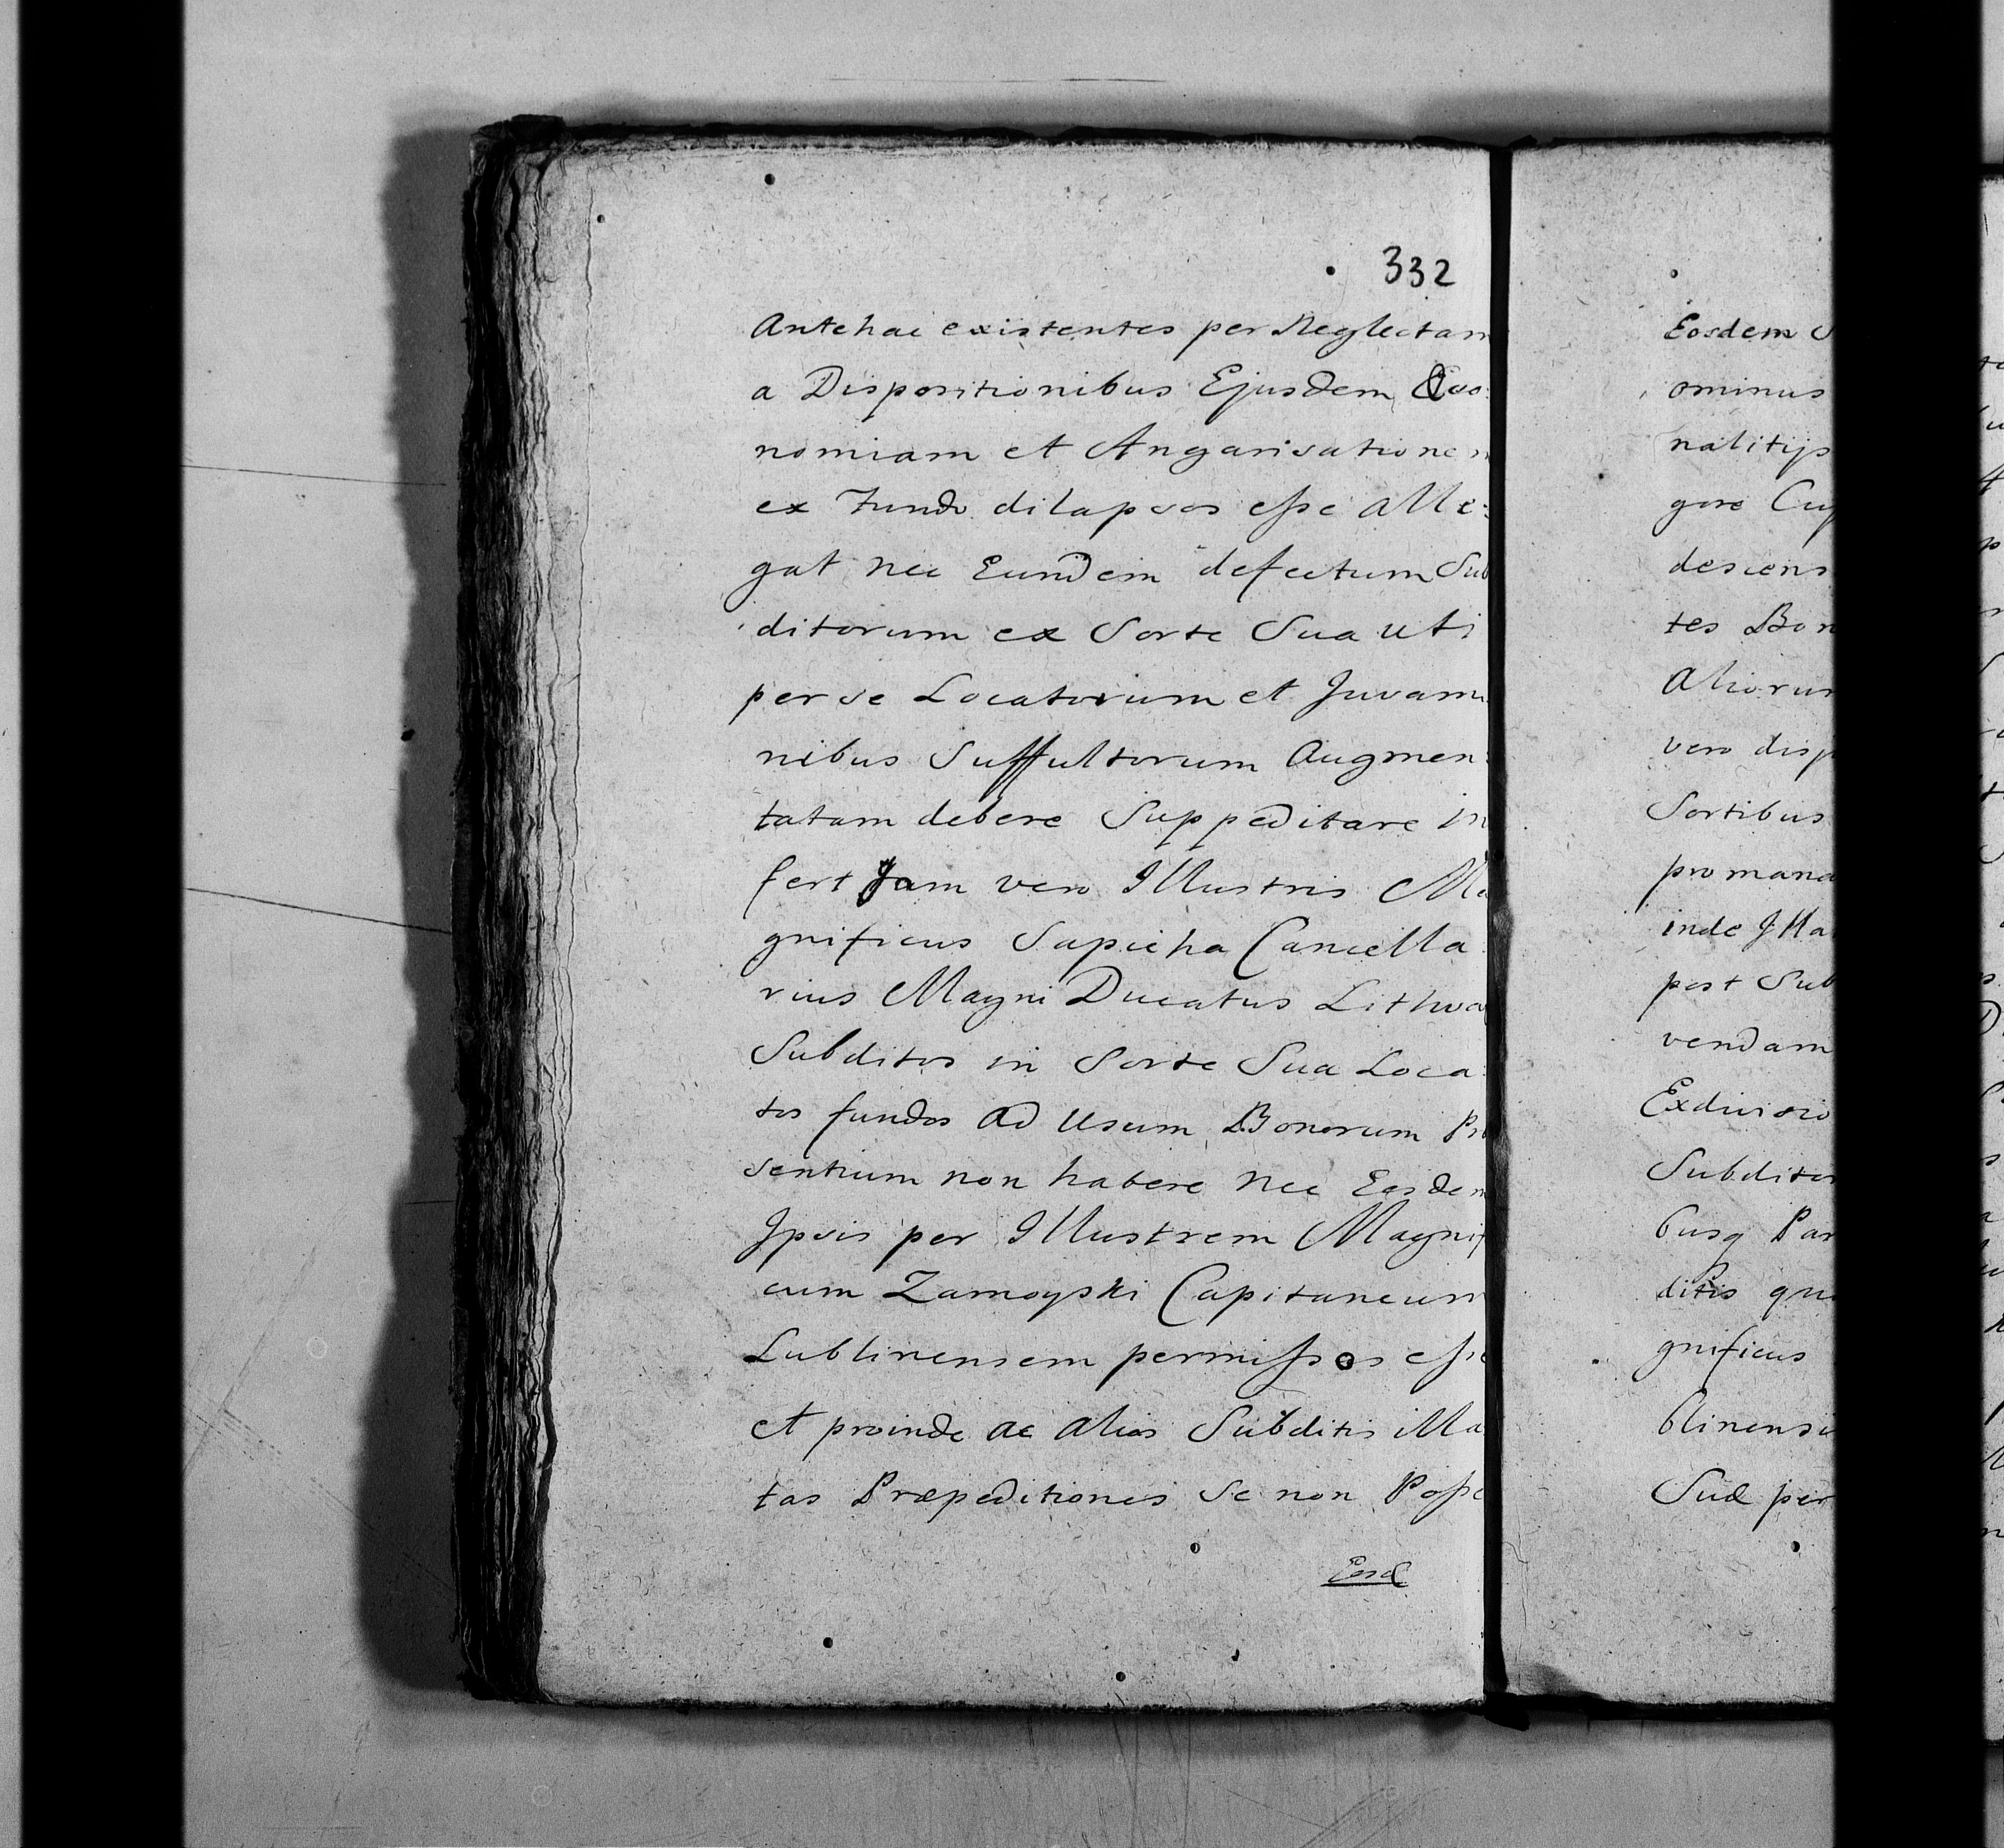 332
Antehac existentes per Neglectam
a Dispositionibus Ejusdem Œco:
nomiam et Angarisationem
ex Fundo dilapsos esse alle:
gat nec Eundem defectum Sub
ditorum ex Sorte Sua uti
per se Locatorum et Juvami
nibus Suffultorum Augmen:
tatam debere Suppeditare in
fert Jam vero Illustris Ma
gnificus Sapieha Cancella
rius Magni Ducatus Lithva
Subditos in Sorte Sua Loca:
tos fundos ad Usum Bonorum
sentium non habere nec Eosdem
Ipsis per Illustrem Magnifi
cum Zamoyski Capitaneum
Lublinensem permissos esse
et proinde ac alios Subditis illa
tas Præpeditiones Se non Posse
Eosd
Eosdem S
ominus
nalitijs
gore Cuj
descens
tes Bon
Aliorum
vero disp
Sortibus
pro mana
inde Illa
post Sub
vendam
Exdivisio
Subditor
busq Par
ditis qu
gnificus
blinensi
Suæ per